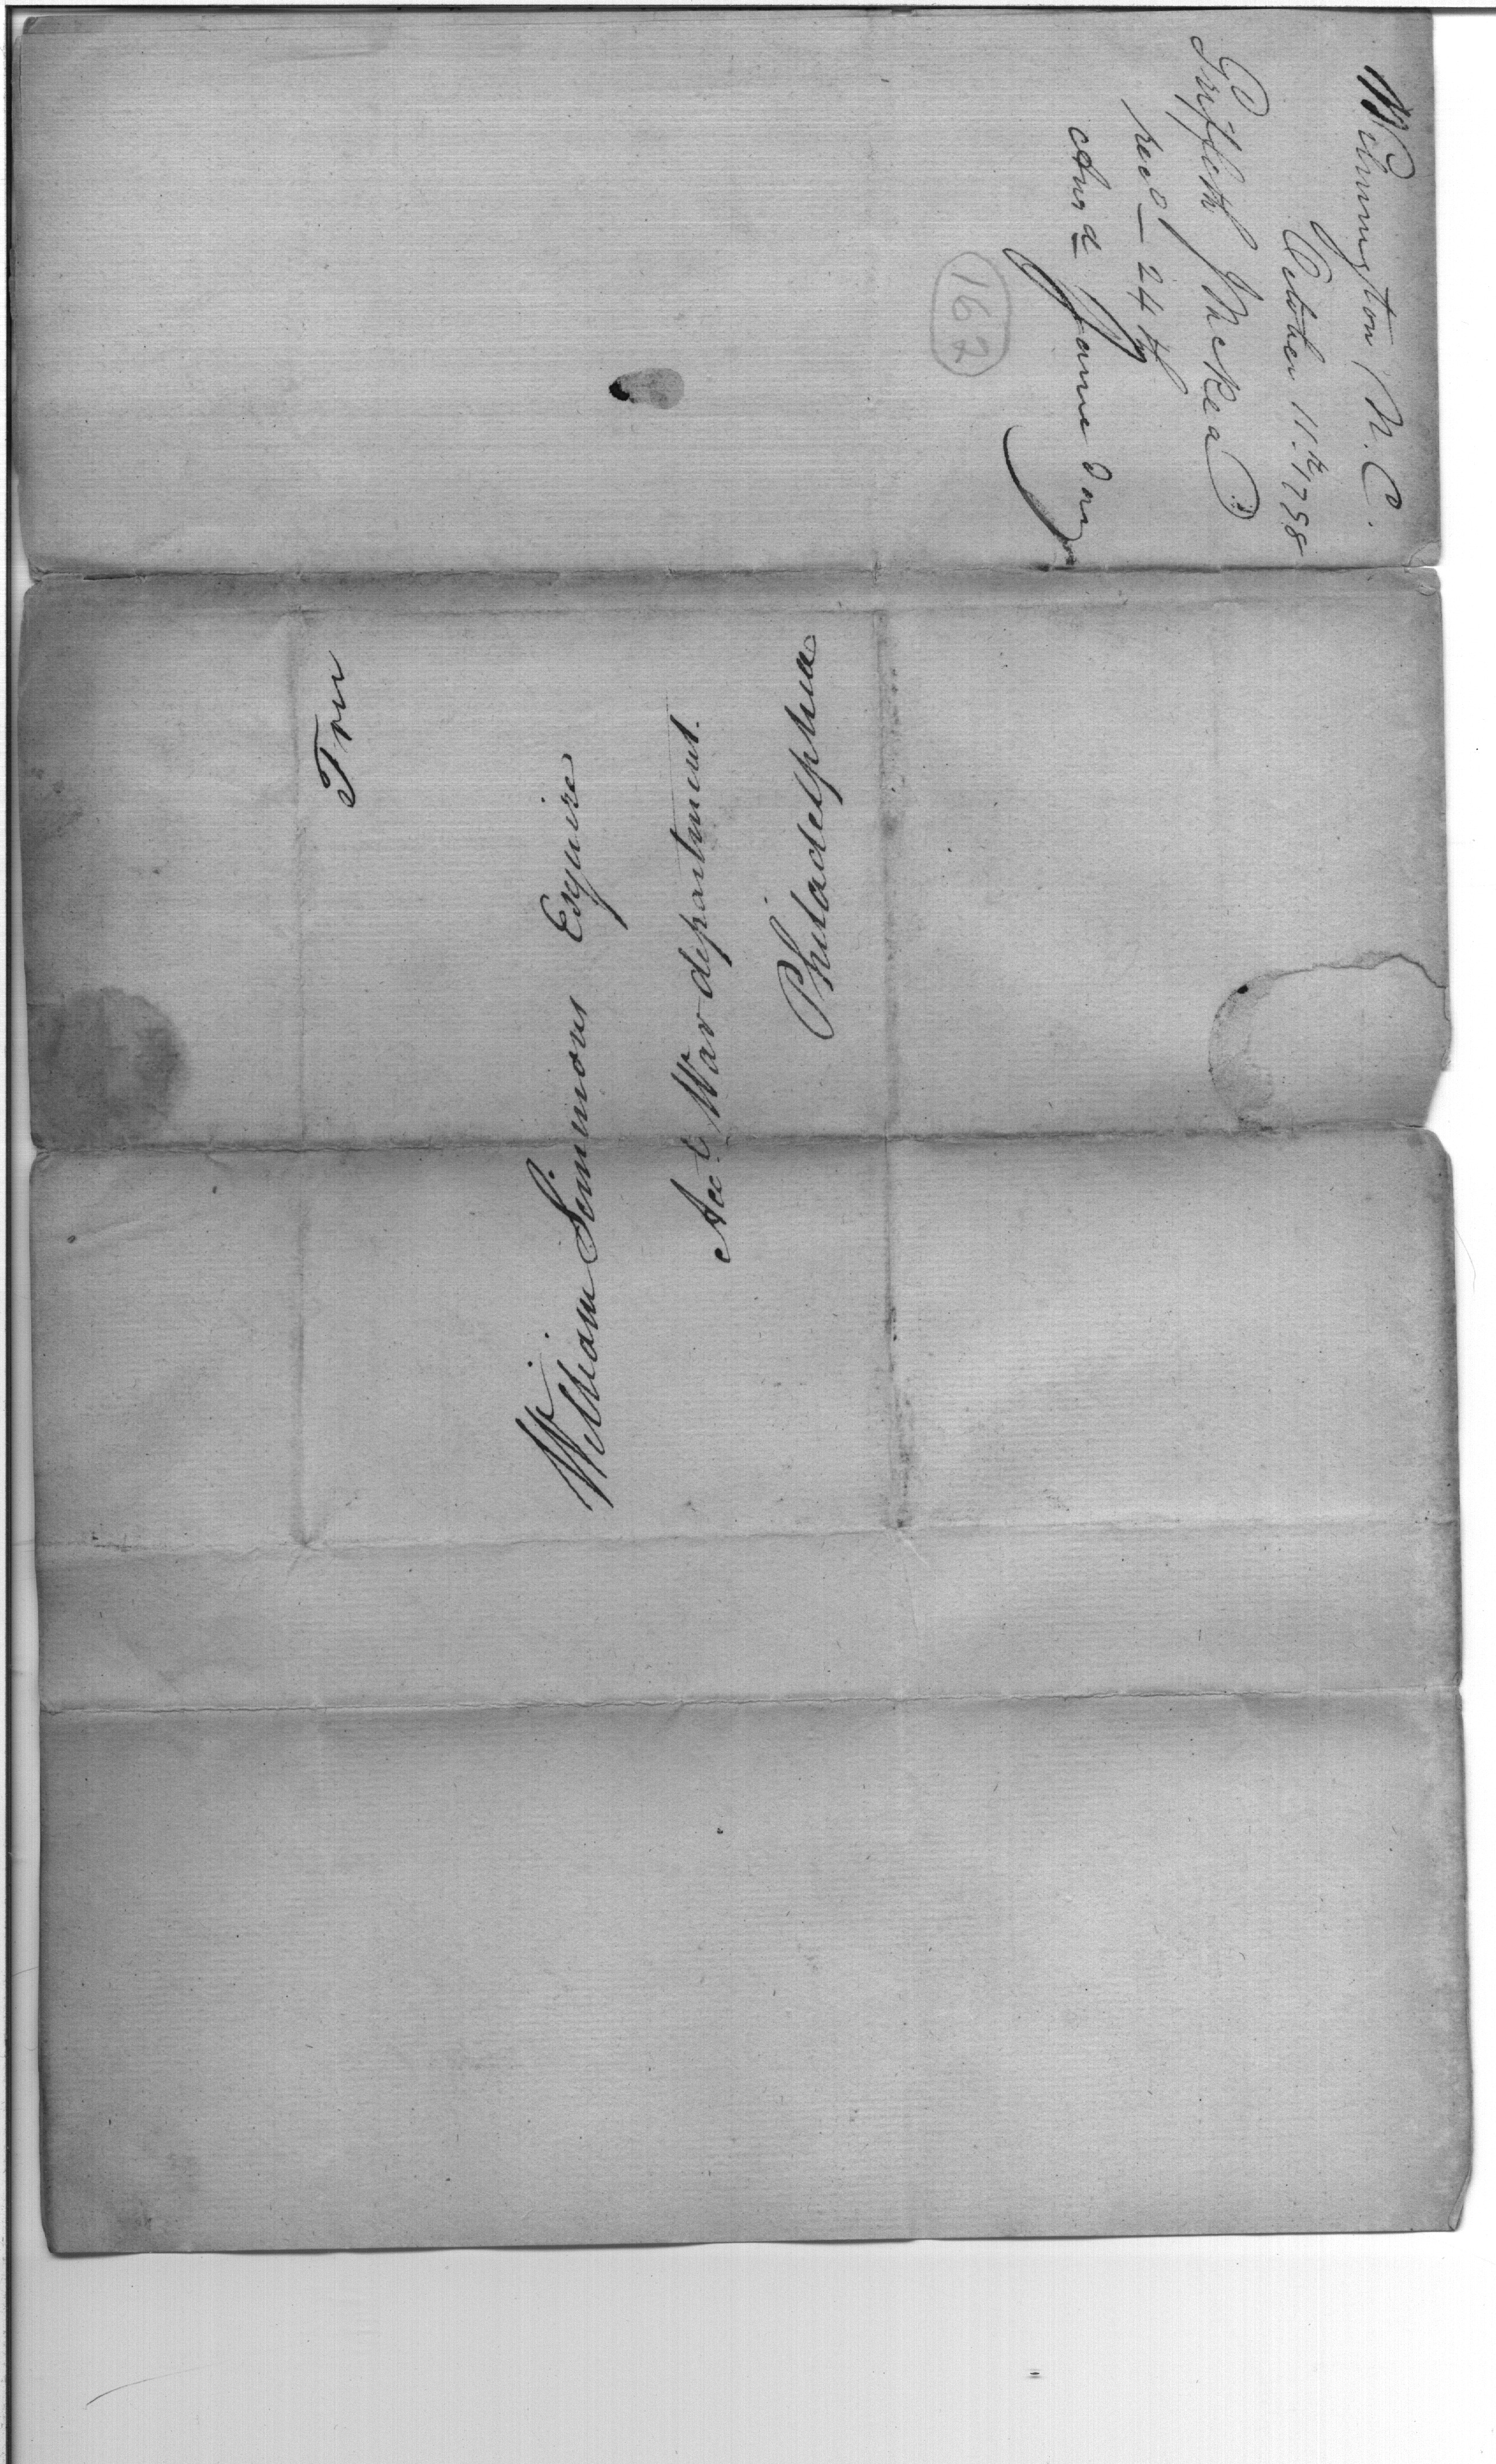 Wilmington N. C.
October 11th 1798
Griffith J McRea
recd — 24th
Ansd same day
162
Free
William Simmons Esquire
Acct War department.
Philadelphia